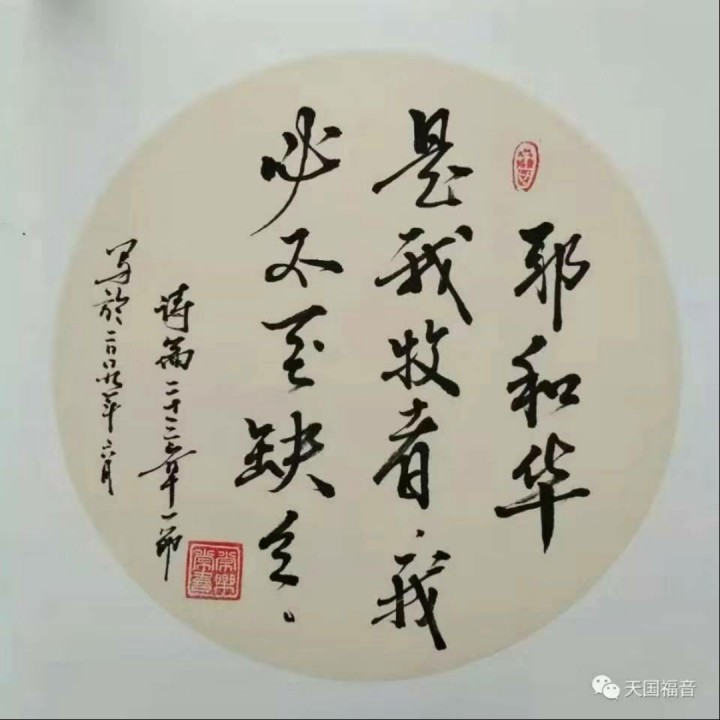 耶和华
是我牧者、我
必不至缺乏、
诗篇二十三章一节
写於年六月
天国福音